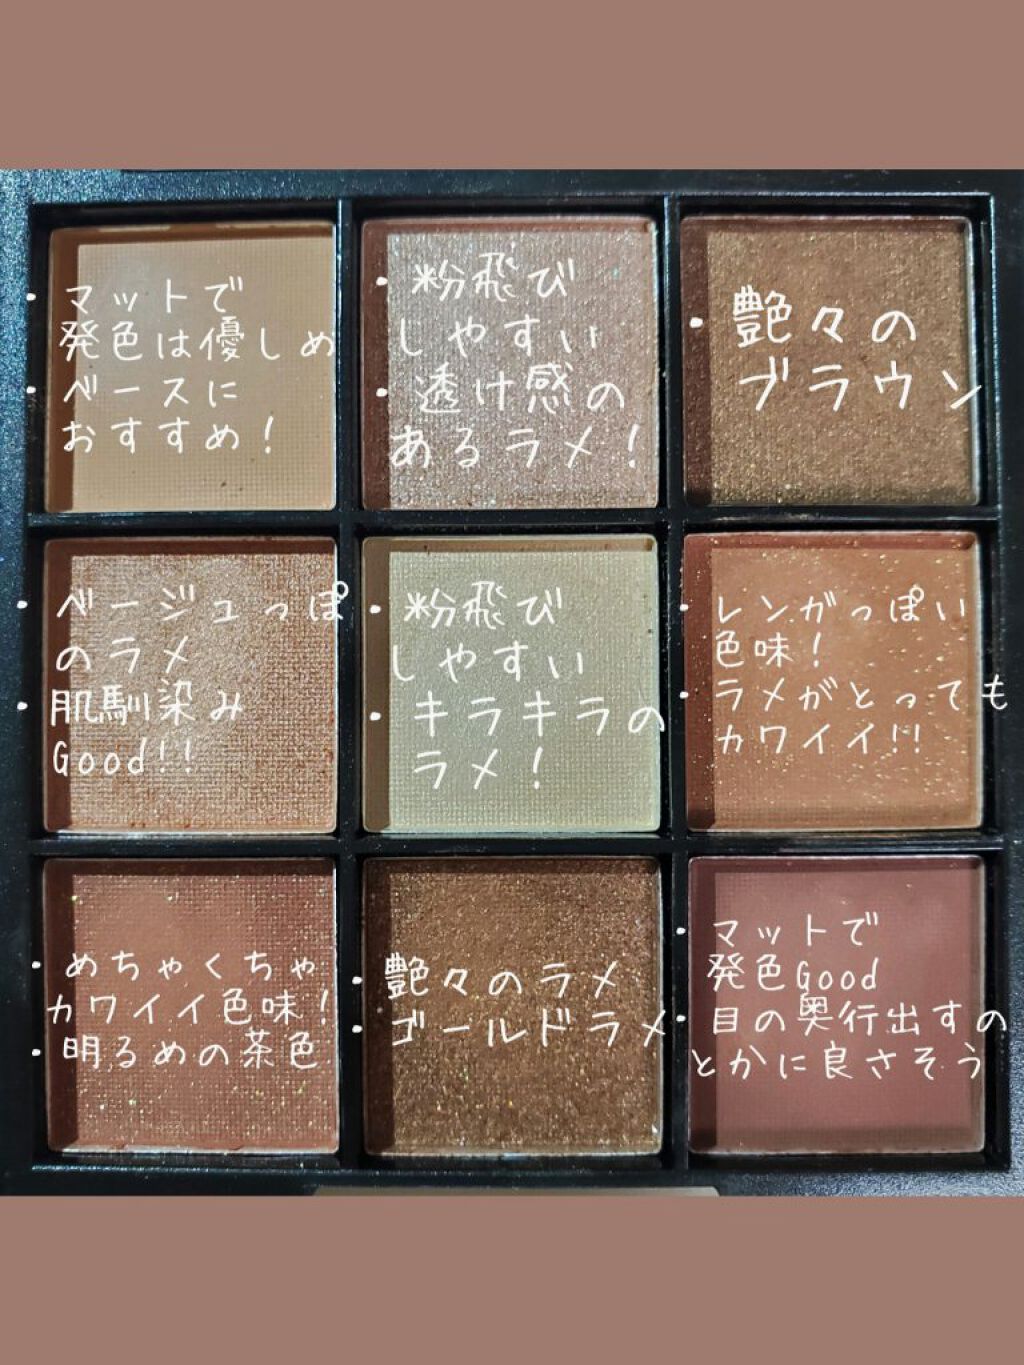 ・マットで
発色は優しめ
・ベースに
おすすめ！
・粉飛び
しやすい
・透け感の
あるラメ！
・艶々の
ブラウン
・ベージュっぽ
のラメ
・肌馴染み
Good!!
・粉飛び
しやすい
・キラキラの
ラメ！
・レンガっぽい
色味！
・ラメがとっても
カワイイ!!
・めちゃくちゃ
カワイイ色味！
・明るめの茶色
・艶々のラメ
・ゴールドラメ
・マットで
発色Good
・目の奥行出すの
とかに良さそう